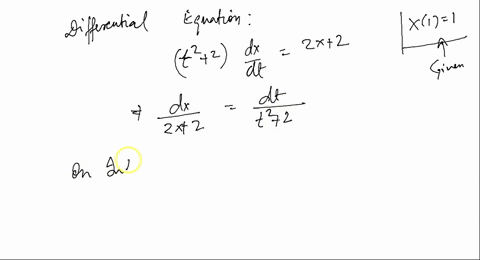 Differential Equation:
(t²+2) dx/dt = 2x+2
X(1)=1
Given
⇒ dx/2x+2 = dt/t²+2
On In